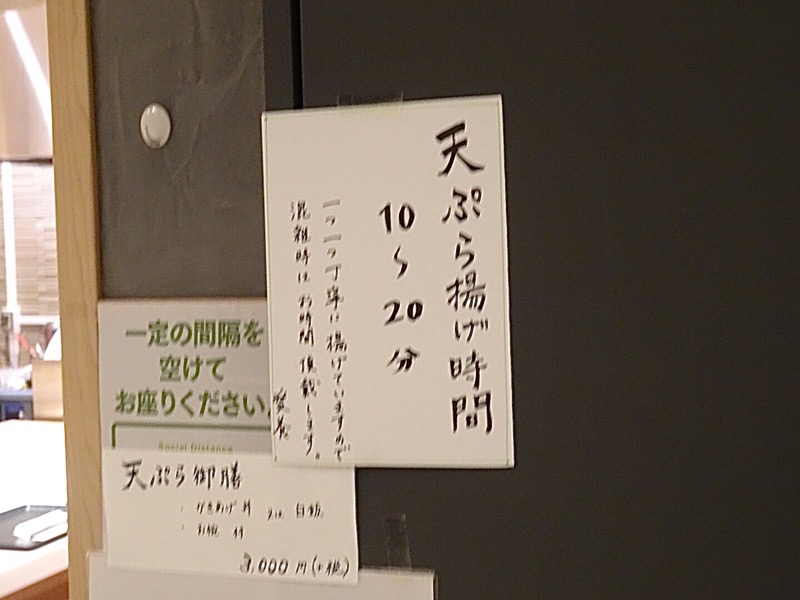 天ぷら揚げ時間
10〜20分
一つ一つ丁寧に揚げていますので
混雑時はお時間頂戴します。
一定の間隔を
空けて
お座りください。
Social Distance
天ぷら御膳
・かきあげ丼 又は 白飯
・お椀 付
3,000円(+税)